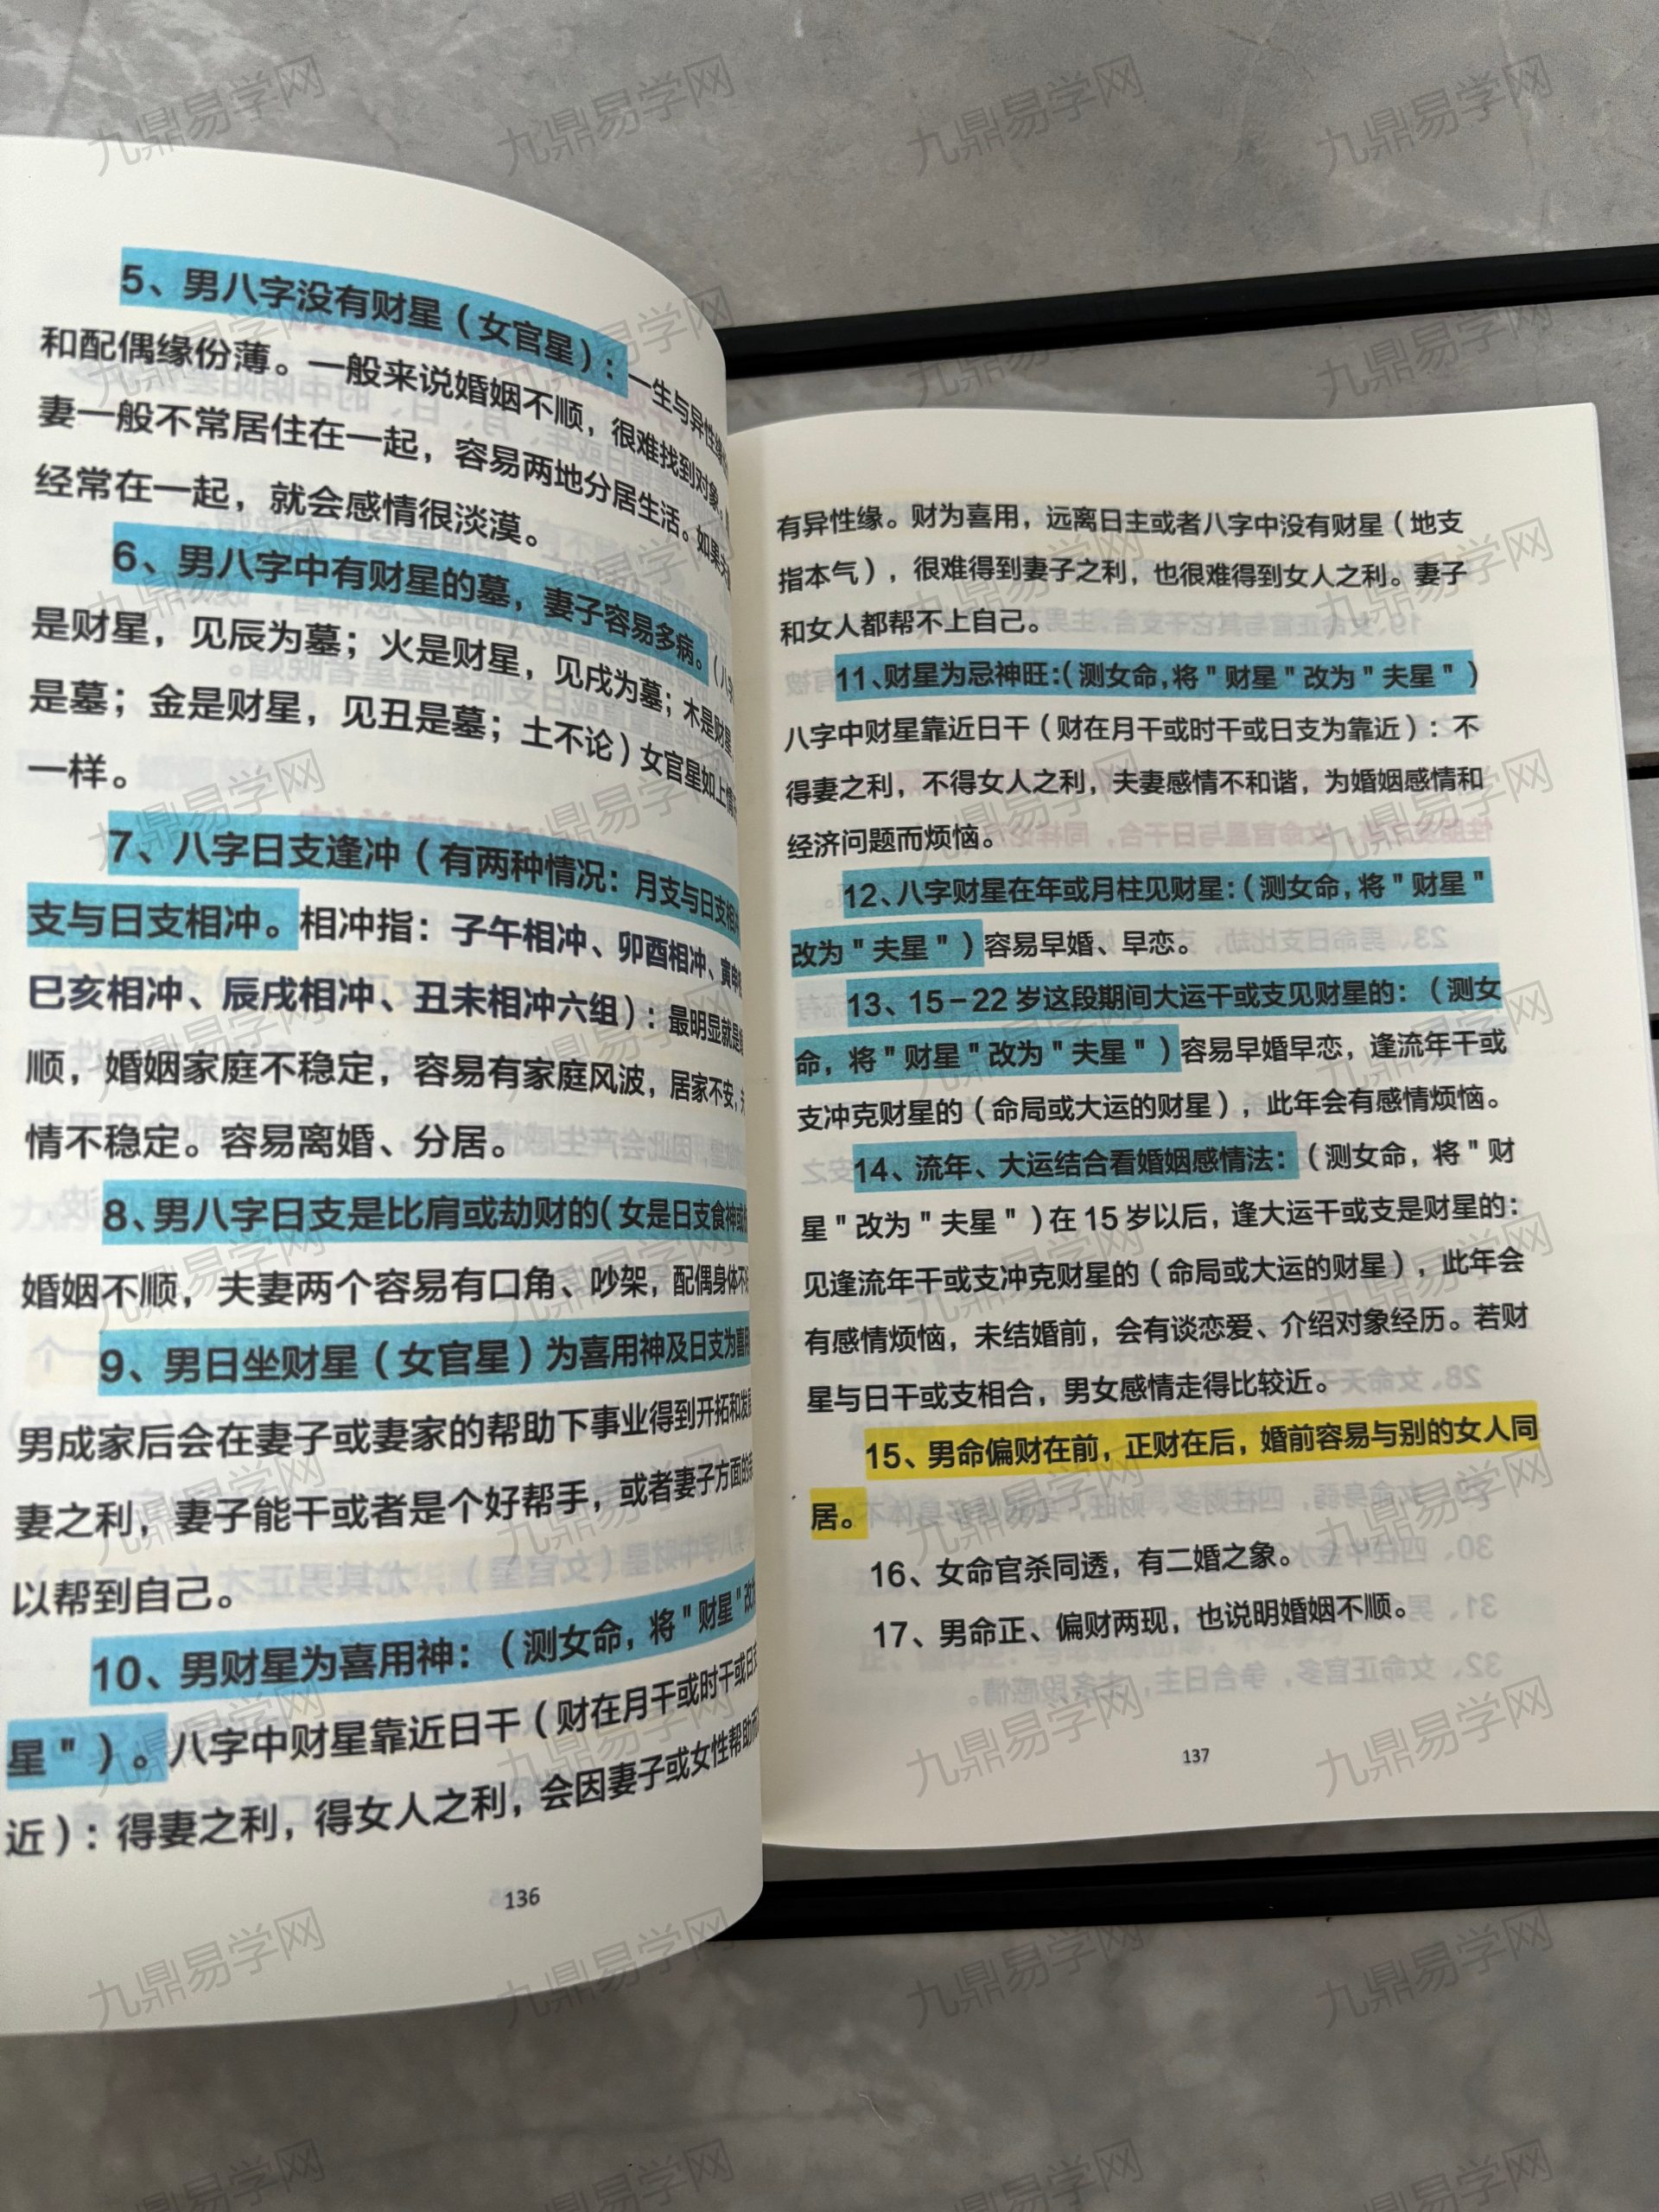 5、男八字没有财星（女官星）：一生与异性缘
和配偶缘份薄。一般来说婚姻不顺，很难找到对象。
妻一般不常居住在一起，容易两地分居生活。如果
经常在一起，就会感情很淡漠。
6、男八字中有财星的墓，妻子容易多病。（八
是财星，见辰为墓；火是财星，见戌为墓；木是财星
是墓；金是财星，见丑是墓；土不论）女官星如上情
一样。
7、八字日支逢冲（有两种情况：月支与日支相
支与日支相冲。相冲指：子午相冲、卯酉相冲、寅申
巳亥相冲、辰戌相冲、丑未相冲六组）：最明显就是
顺，婚姻家庭不稳定，容易有家庭风波，居家不安，
情不稳定。容易离婚、分居。
8、男八字日支是比肩或劫财的（女是日支食神或
婚姻不顺，夫妻两个容易有口角、吵架，配偶身体不
9、男日坐财星（女官星）为喜用神及日支为喜用
男成家后会在妻子或妻家的帮助下事业得到开拓和发
妻之利，妻子能干或者是个好帮手，或者妻子方面的
以帮到自己。
10、男财星为喜用神：（测女命，将"财星"改
星"）。八字中财星靠近日干（财在月干或时干或日支
近）：得妻之利，得女人之利，会因妻子或女性帮助而
136
有异性缘。财为喜用，远离日主或者八字中没有财星（地支
指本气），很难得到妻子之利，也很难得到女人之利。妻子
和女人都帮不上自己。
11、财星为忌神旺：（测女命，将"财星"改为"夫星"）
八字中财星靠近日干（财在月干或时干或日支为靠近）：不
得妻之利，不得女人之利，夫妻感情不和谐，为婚姻感情和
经济问题而烦恼。
12、八字财星在年或月柱见财星：（测女命，将"财星"
改为"夫星"）容易早婚、早恋。
13、15－22岁这段期间大运干或支见财星的：（测女
命，将"财星"改为"夫星"）容易早婚早恋，逢流年干或
支冲克财星的（命局或大运的财星），此年会有感情烦恼。
14、流年、大运结合看婚姻感情法：（测女命，将"财
星"改为"夫星"）在15岁以后，逢大运干或支是财星的：
见逢流年干或支冲克财星的（命局或大运的财星），此年会
有感情烦恼，未结婚前，会有谈恋爱、介绍对象经历。若财
星与日干或支相合，男女感情走得比较近。
15、男命偏财在前，正财在后，婚前容易与别的女人同
居。
16、女命官杀同透，有二婚之象。
17、男命正、偏财两现，也说明婚姻不顺。
137
九鼎易学网